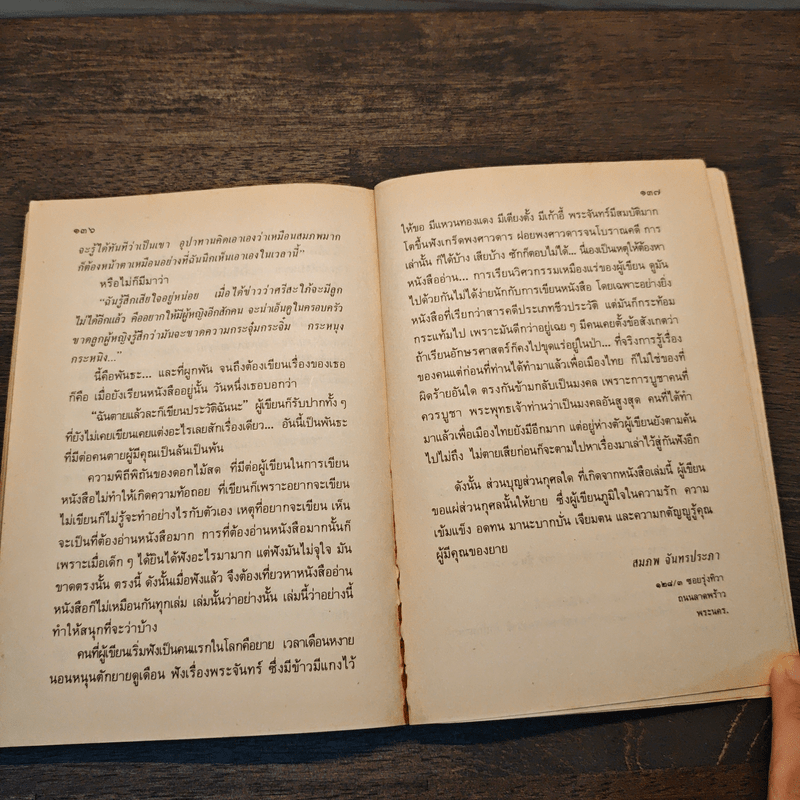 ๑๓๖
จะรู้ได้ทันทีว่าเป็นเขา อุปาทานคิดเอาเองว่าเหมือนสมภพมาก
ก็ต้องหน้าตาเหมือนอย่างที่ฉันนึกเห็นเอาเองในเวลานี้”
หรือไม่ก็มีมาว่า
“ฉันรู้สึกเสียใจอยู่หน่อย เมื่อได้ข่าวว่าศรีสะใภ้จะมีลูก
ไม่ได้อีกแล้ว คืออยากให้มีผู้หญิงอีกสักคน จะน่าเอ็นดูในครอบครัว
ขาดลูกผู้หญิงรู้สึกว่ามันจะขาดความกระจุ๋มกระจิ๋ม กระหนุง
กระหนิง...”
นี้คือพันธะ... และที่ผูกพัน จนถึงต้องเขียนเรื่องของเธอ
ก็คือ เมื่อยังเรียนหนังสืออยู่นั้น วันหนึ่งเธอบอกว่า
“ฉันตายแล้วละก็เขียนประวัติฉันนะ” ผู้เขียนก็รับปากทั้ง ๆ
ที่ยังไม่เคยเขียนเคยแต่งอะไรเลยสักเรื่องเดียว... อันนี้เป็นพันธะ
ที่มีต่อคนตายผู้มีคุณเป็นล้นเป็นพ้น
ความพิถีพิถันของดอกไม้สด ที่มีต่อผู้เขียนในการเขียน
หนังสือไม่ทำให้เกิดความท้อถอย ที่เขียนก็เพราะอยากจะเขียน
ไม่เขียนก็ไม่รู้จะทำอย่างไรกับตัวเอง เหตุที่อยากจะเขียน เห็น
จะเป็นที่ต้องอ่านหนังสือมาก การที่ต้องอ่านหนังสือมากนั้นก็
เพราะเมื่อเด็ก ๆ ได้ยินได้ฟังอะไรมามาก แต่ฟังมันไม่จุใจ มัน
ขาดตรงนั้น ตรงนี้ ดังนั้นเมื่อฟังแล้ว จึงต้องเที่ยวหาหนังสืออ่าน
หนังสือก็ไม่เหมือนกันทุกเล่ม เล่มนั้นว่าอย่างนั้น เล่มนี้ว่าอย่างนี้
ทำให้สนุกที่จะว่าบ้าง
คนที่ผู้เขียนเริ่มฟังเป็นคนแรกในโลกคือยาย เวลาเดือนหงาย
นอนหนุนตักยายดูเดือน ฟังเรื่องพระจันทร์ ซึ่งมีข้าวมีแกงไว้
๑๓๗
ให้ขอ มีแหวนทองแดง มีเตียงตั้ง มีเก้าอี้ พระจันทร์มีสมบัติมาก
โตขึ้นฟังเกร็ดพงศาวดาร ฝอยพงศาวดารจนโบราณคดี การ
เล่านั้น ก็ได้บ้าง เสียบ้าง ซักก็ตอบไม่ได้... นี่เองเป็นเหตุให้ต้องหา
หนังสืออ่าน... การเรียนวิศวกรรมเหมืองแร่ของผู้เขียน ดูมัน
ไปด้วยกันไม่ได้ง่ายนักกับการเขียนหนังสือ โดยเฉพาะอย่างยิ่ง
หนังสือที่เรียกว่าสารคดีประเภทชีวประวัติ แต่มันก็กระท้อม
กระแท้มไป เพราะมันดีกว่าอยู่เฉย ๆ มีคนเคยตั้งข้อสังเกตว่า
ถ้าเรียนอักษรศาสตร์ก็คงไปขุดแร่อยู่ในป่า... ที่จริงการรู้เรื่อง
ของคนแต่ก่อนที่ท่านได้ทำมาแล้วเพื่อเมืองไทย ก็ไม่ใช่ของที่
ผิดร้ายอันใด ตรงกันข้ามกลับเป็นมงคล เพราะการบูชาคนที่
ควรบูชา พระพุทธเจ้าท่านว่าเป็นมงคลอันสูงสุด คนที่ได้ทำ
มาแล้วเพื่อเมืองไทยยังมีอีกมาก แต่อยู่ห่างตัวผู้เขียนยังตามค้น
ไปไม่ถึง ไม่ตายเสียก่อนก็จะตามไปหาเรื่องมาเล่าไว้สู่กันฟังอีก
ดังนั้น ส่วนบุญส่วนกุศลใด ที่เกิดจากหนังสือเล่มนี้ ผู้เขียน
ขอแผ่ส่วนกุศลนั้นให้ยาย ซึ่งผู้เขียนภูมิใจในความรัก ความ
เข้มแข็ง อดทน มานะบากบั่น เจียมตน และความกตัญญูรู้คุณ
ผู้มีคุณของยาย
สมภพ จันทรประภา
๑๒๘/๓ ซอยรุ่งทิวา
ถนนลาดพร้าว
พระนคร.